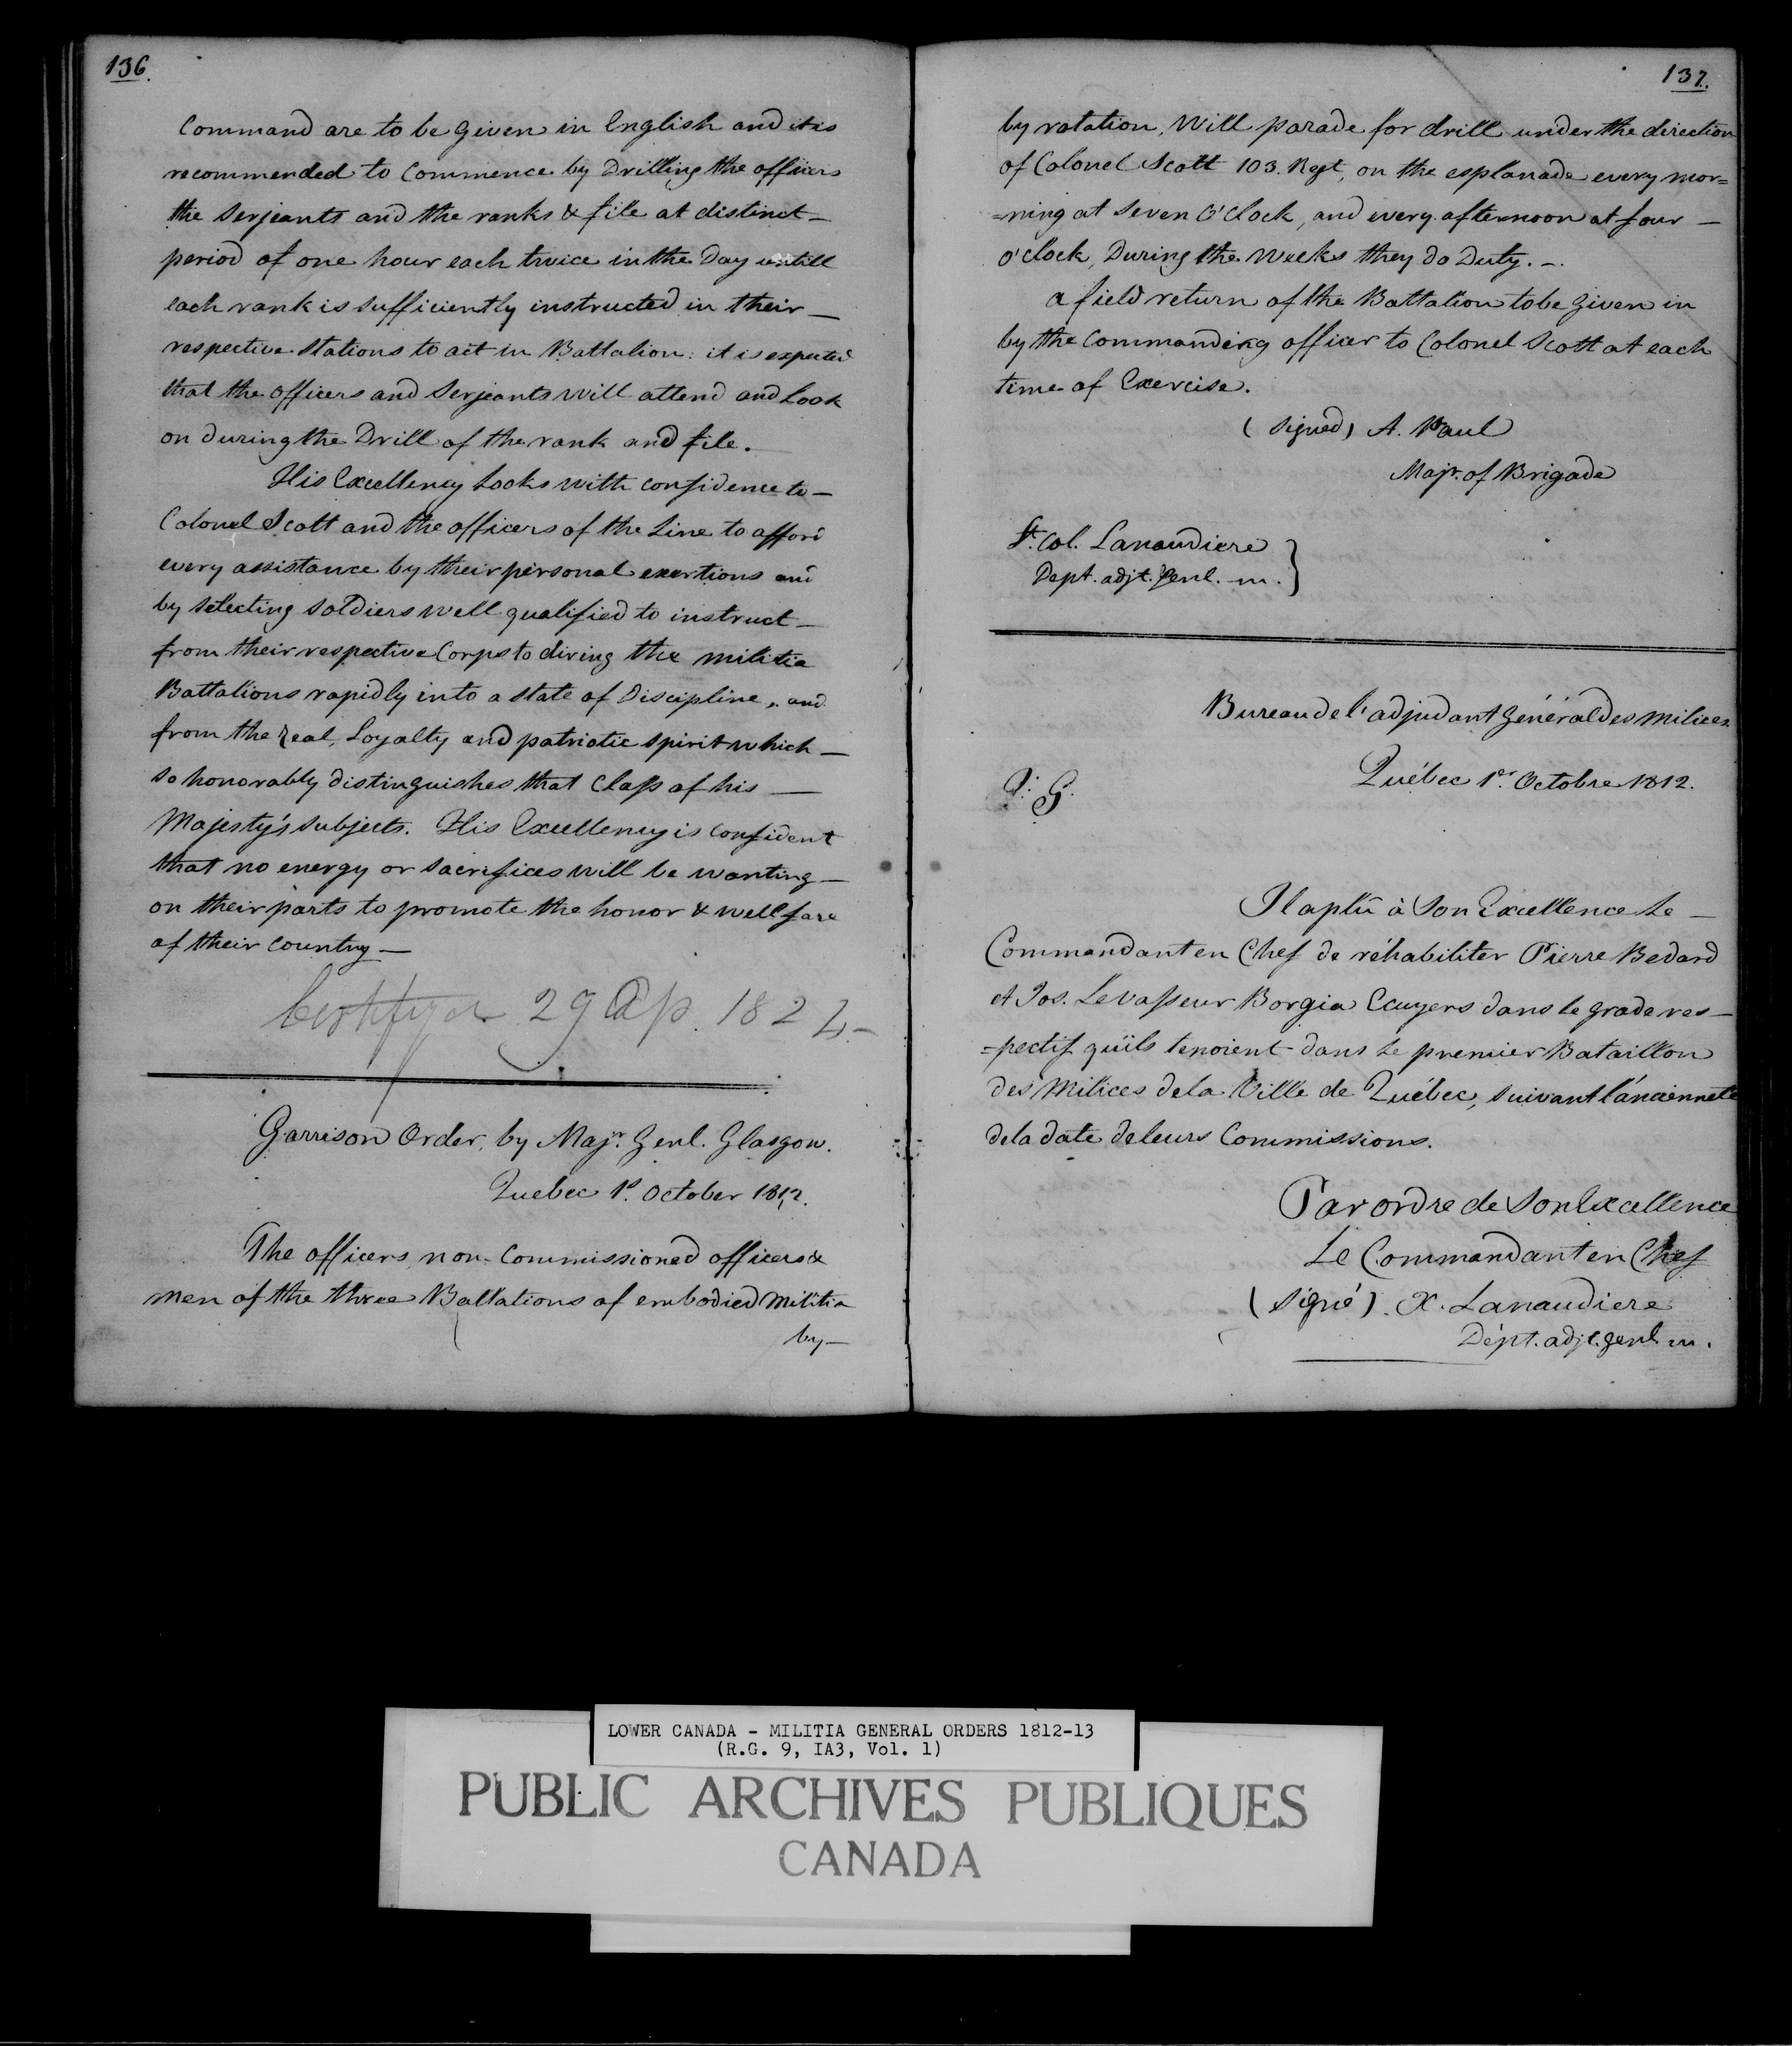 136.
Command are to be Given in English and it is
recommended to Commence by Drilling the officers
the Serjeants and the ranks & file at distinct—
period of one hour each twice in the Day untill
each rank is sufficiently instructed in their—
respective Stations to act in Battalion: it is expected
that the officers and Serjeants will attend and Look
on during the Drill of the rank and file.
His Excellency Looks with confidence to—
Colonel Scott and the officers of the Line to afford
every assistance by their personal exertions and
by selecting Soldiers well qualified to instruct—
from their respective Corps to diring the militia
Battalions rapidly into a state of Discipline, and
from the zeal, Loyalty and patriotic spirit which—
so honorably distinguishes that Class of his—
Majesty's subjects. His Excellency is confident
that no energy or sacrifices will be wanting—
on their parts to promote the honor & wellfare
of their Country—
29 Ap. 182
Garrison Order, by Majr. Genl. Glasgow.
Quebec 1st. October 1812.
The officers, non-Commissioned officers &
men of the three Battations of embodied Militia
by—
137.
by rotation, Will parade for drill under the direction
of Colonel Scott 103. Regt, on the esplanade every mor=
=ning at Seven O'Clock, and every afternoon at four—
O'clock, During the Weeks they do Duty.—
a field return of the Battation to be Given in
by the Commanding officer to Colonel Scott at each
time of Exercise.
(Signed) A. Paul
Majr. of Brigade
Lt. Col. Lanaudiere
Dept. adjt. Genl. m. }
Bureau de l'adjudant Général des milices
Québec 1er. Octobre 1812.
O: G.
Il a plû à Son Excellence Le—
Commandant en Chef de réhabiliter Pierre Bedard
et Jos. Levasseur Borgia Ecuyers dans le grade res—
=pectif qu'ils tenoient dans le premier Bataillon
des Milices de la Ville de Québec, suivant l'ancienneté
de la date de leurs Commissions.
Par ordre de Son Excellence
Le Commandant en Chef
(Signé) X. Lanaudiere
Dépt. adjt. genl. m.
LOWER CANADA - MILITIA GENERAL ORDERS 1812-13
(R.G. 9, IA3, Vol. 1)
PUBLIC ARCHIVES PUBLIQUES
CANADA